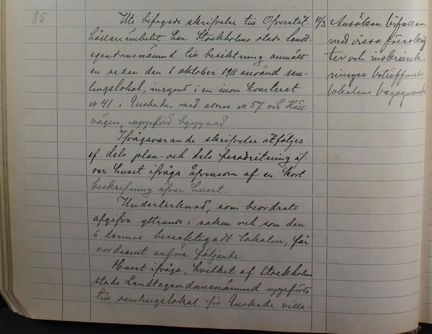 85
Uti bifogade skrifvelse till Öfverståt-
hållareämbetet har Stockholms stads Landt-
egendomsnämnd till besiktning anmält
en sedan den 1 oktober 1911 använd sam-
lingslokal, inrymd i en inom kvarteret
N 41 i Enskede, med adress N 57 vid
vägen, uppförd byggnad.
Ifrågavarande skrifvelse åtföljes
af dels plan- och dels fasadritning öf-
ver huset ifråga äfvensom af en kort
beskrifning öfver huset.
Undertecknad, som beordrats
afgifva yttrande i saken och som den
6 dennes besiktigat lokalen, får
vördsamt anföra följande.
Huset ifråga, hvilket af Stockholms
stads Landtegendomsnämnd uppförts
till samlingslokal för Enskede villa-
Ansökan bifallen
med vissa föreskrif-
ter och inskränk-
ningar beträffande
lokalens begagnande